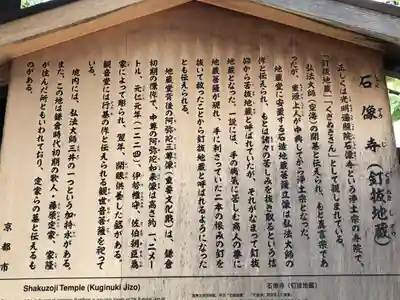 石像寺（釘抜地蔵）
正しくは光明遍照院石像寺という浄土宗の寺院で、
「釘抜地蔵」「くぎぬきさん」として親しまれている。
弘法大師（空海）の開基と伝えられ、もと真言宗であ
ったが、重源上人が中興してから浄土宗となった。
地蔵堂に安置する石造地蔵菩薩立像は弘法大師の
作と伝えられ、もとは諸々の苦しみを抜き取るという信
仰から苦抜地蔵と呼ばれていたが、それがなまって釘抜
地蔵となった。一説には、手の病気に苦しむ商人の夢に
地蔵菩薩が現れ、手に刺さっていた二本の恨みの釘を
抜いて救ったことから釘抜地蔵と呼ばれるようになった
とも伝えられる。
地蔵堂背後の阿弥陀三尊像（重要文化財）は、鎌倉
初期の像作で、中尊の阿弥陀如来像は高さ約一、二メー
トル、元仁元年（一二二四）伊勢権守、佐伯朝臣為
家によって彫られ、翌年、開眼供養した銘がある。
観音堂には行基の作と伝えられる観世音菩薩を祀って
いる。
境内には、弘法大師三井の一つという加持水がある。
また、この地は鎌倉時代初期の歌人・藤原定家、家隆
が住んだ所ともいわれており、定家らの墓と伝えるも
のがある。
京都市
Shakuzoji Temple (Kuginuki Jizo)
石像寺（釘抜地蔵）